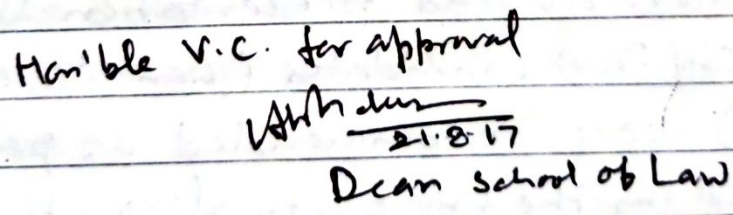 Hon'ble V.C. for approval
21.8.17
Dean School of Law